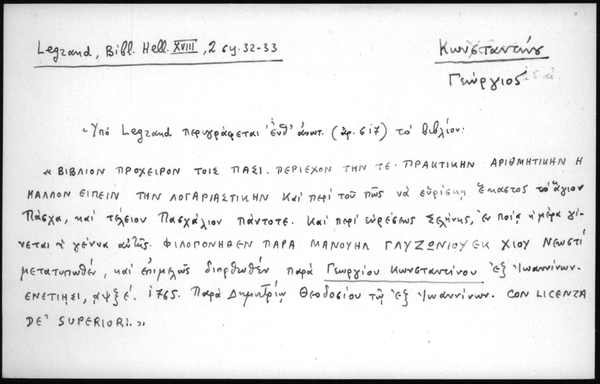 Legrand, Bibl. Hell. XVIII, 2 σy. 32-33
Κωνσταντίνος
Γεώργιος
"Υπό Legrand περιγράφεται ἐνθ' ἀνωτ. (ἀρ. 617) τὸ βιβλίον:
« ΒΙΒΛΙΟΝ ΠΡΟΧΕΙΡΟΝ ΤΟΙΣ ΠΑΣΙ. ΠΕΡΙΕΧΟΝ ΤΗΝ ΤΕ ΠΡΑΚΤΙΚΗΝ ΑΡΙΘΜΗΤΙΚΗΝ Η
ΜΑΛΛΟΝ ΕΙΠΕΙΝ ΤΗΝ ΛΟΓΑΡΙΑΣΤΙΚΗΝ Καὶ περὶ τοῦ πῶς νὰ εὑρίσκῃ ἕκαστος τὸ ἅγιον
Πάσχα, καὶ τέλειον Πασχάλιον πάντοτε. Καὶ περὶ εὑρέσεως Σελήνης, ἐν ποίᾳ ἡμέρᾳ γί-
νεται ἡ γέννα αὐτῆς. ΦΙΛΟΠΟΝΗΘΕΝ ΠΑΡΑ ΜΑΝΟΥΗΛ ΓΛΥΖΩΝΙΟΥ ΕΚ ΧΙΟΥ Νεωστί
μετατυπωθέν, καὶ ἐπιμελῶς διορθωθὲν παρὰ Γεωργίου Κωνσταντίνου ἐξ Ἰωαννίνων.
ΕΝΕΤΙΗΣΙ, αψξέ. 1765. Παρὰ Δημητρίῳ Θεοδοσίου τῷ ἐξ Ἰωαννίνων. CON LICENZA
DE' SUPERIORI.»